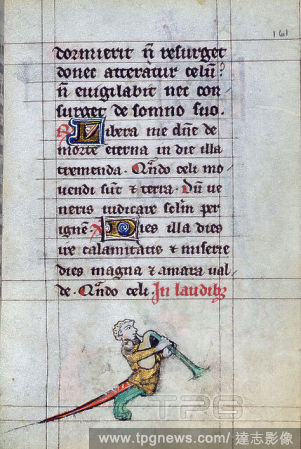 161
dormierit ñ resurget
donec atteratur celũ?
ñ evigilabit nec con
surget de somno suo.
R Libera me dñe de
morte eterna in die illa
tremenda. Qñdo celi mo
vendi sũt ⁊ terra. Dũ ue
neris iudicare seculũ per
ignẽ. V Dies illa dies
ire calamitatis ⁊ miserie
dies magna ⁊ amara ual
de. Qñdo celi In laudibꝫ
TPG
www.tpgnews.com/ 達志影像